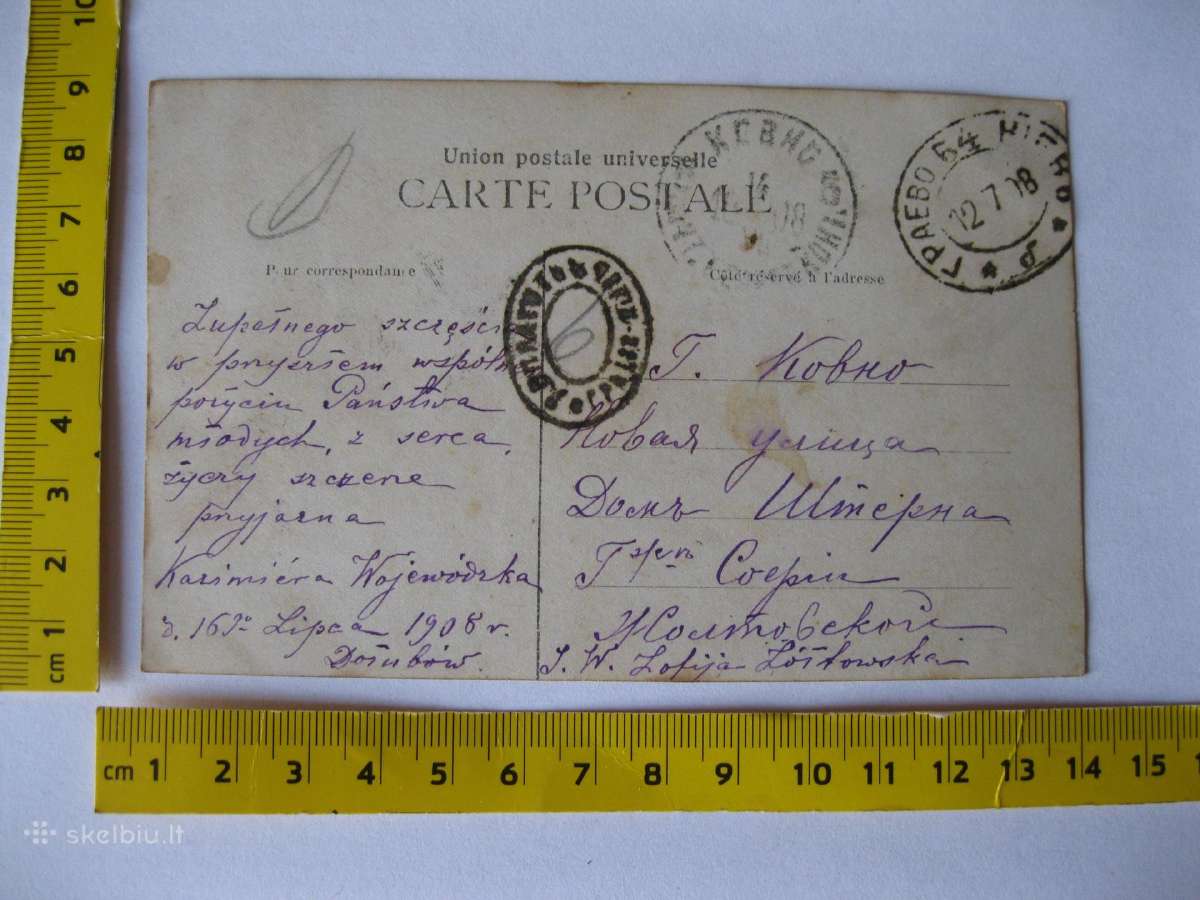 Union postale universelle
CARTE POSTALE
Pour correspondance
Côté réservé à l'adresse
КОВНО
08
ГРАЕВО 64 КІЕВЪ
12 7 08
6
Zupełnego szczęści
w przyszłem wspóln
pożyciu Państwa
młodych, z serca,
życzy szczerze
przyjazna
Kazimiéra Wojewódzka
d. 16go Lipca 1908 r.
Dołubów.
Г. Ковно
Новая улица
Домъ Штерна
Софіи
Жолтовской
J. W. Zofija Żółtowska
cm 1 2 3 4 5 6 7 8 9 10
cm 1 2 3 4 5 6 7 8 9 10 11 12 13 14 15
skelbiu.lt